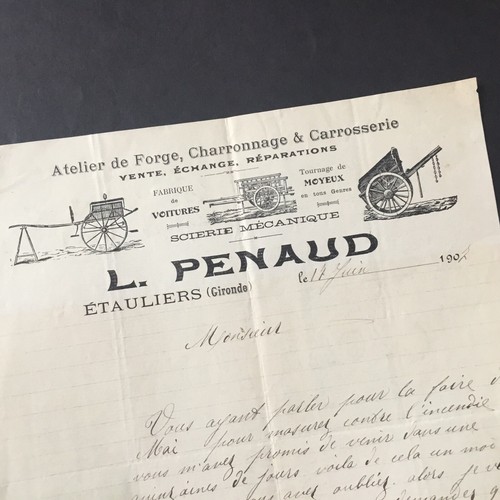 Atelier de Forge, Charronnage & Carrosserie
VENTE, ÉCHANGE, RÉPARATIONS
FABRIQUE
de
VOITURES
Tournage de
MOYEUX
en tous Genres
SCIERIE MÉCANIQUE
L. PENAUD
ÉTAULIERS (Gironde
le 14 Juin 190
Monsieur
Vous ayant parler pour la faire
Mai pour masures contre l'incendie
vous m'aves promis de venir dans une
quinzaines de jours voila de cela un moi
aves oublier alors je